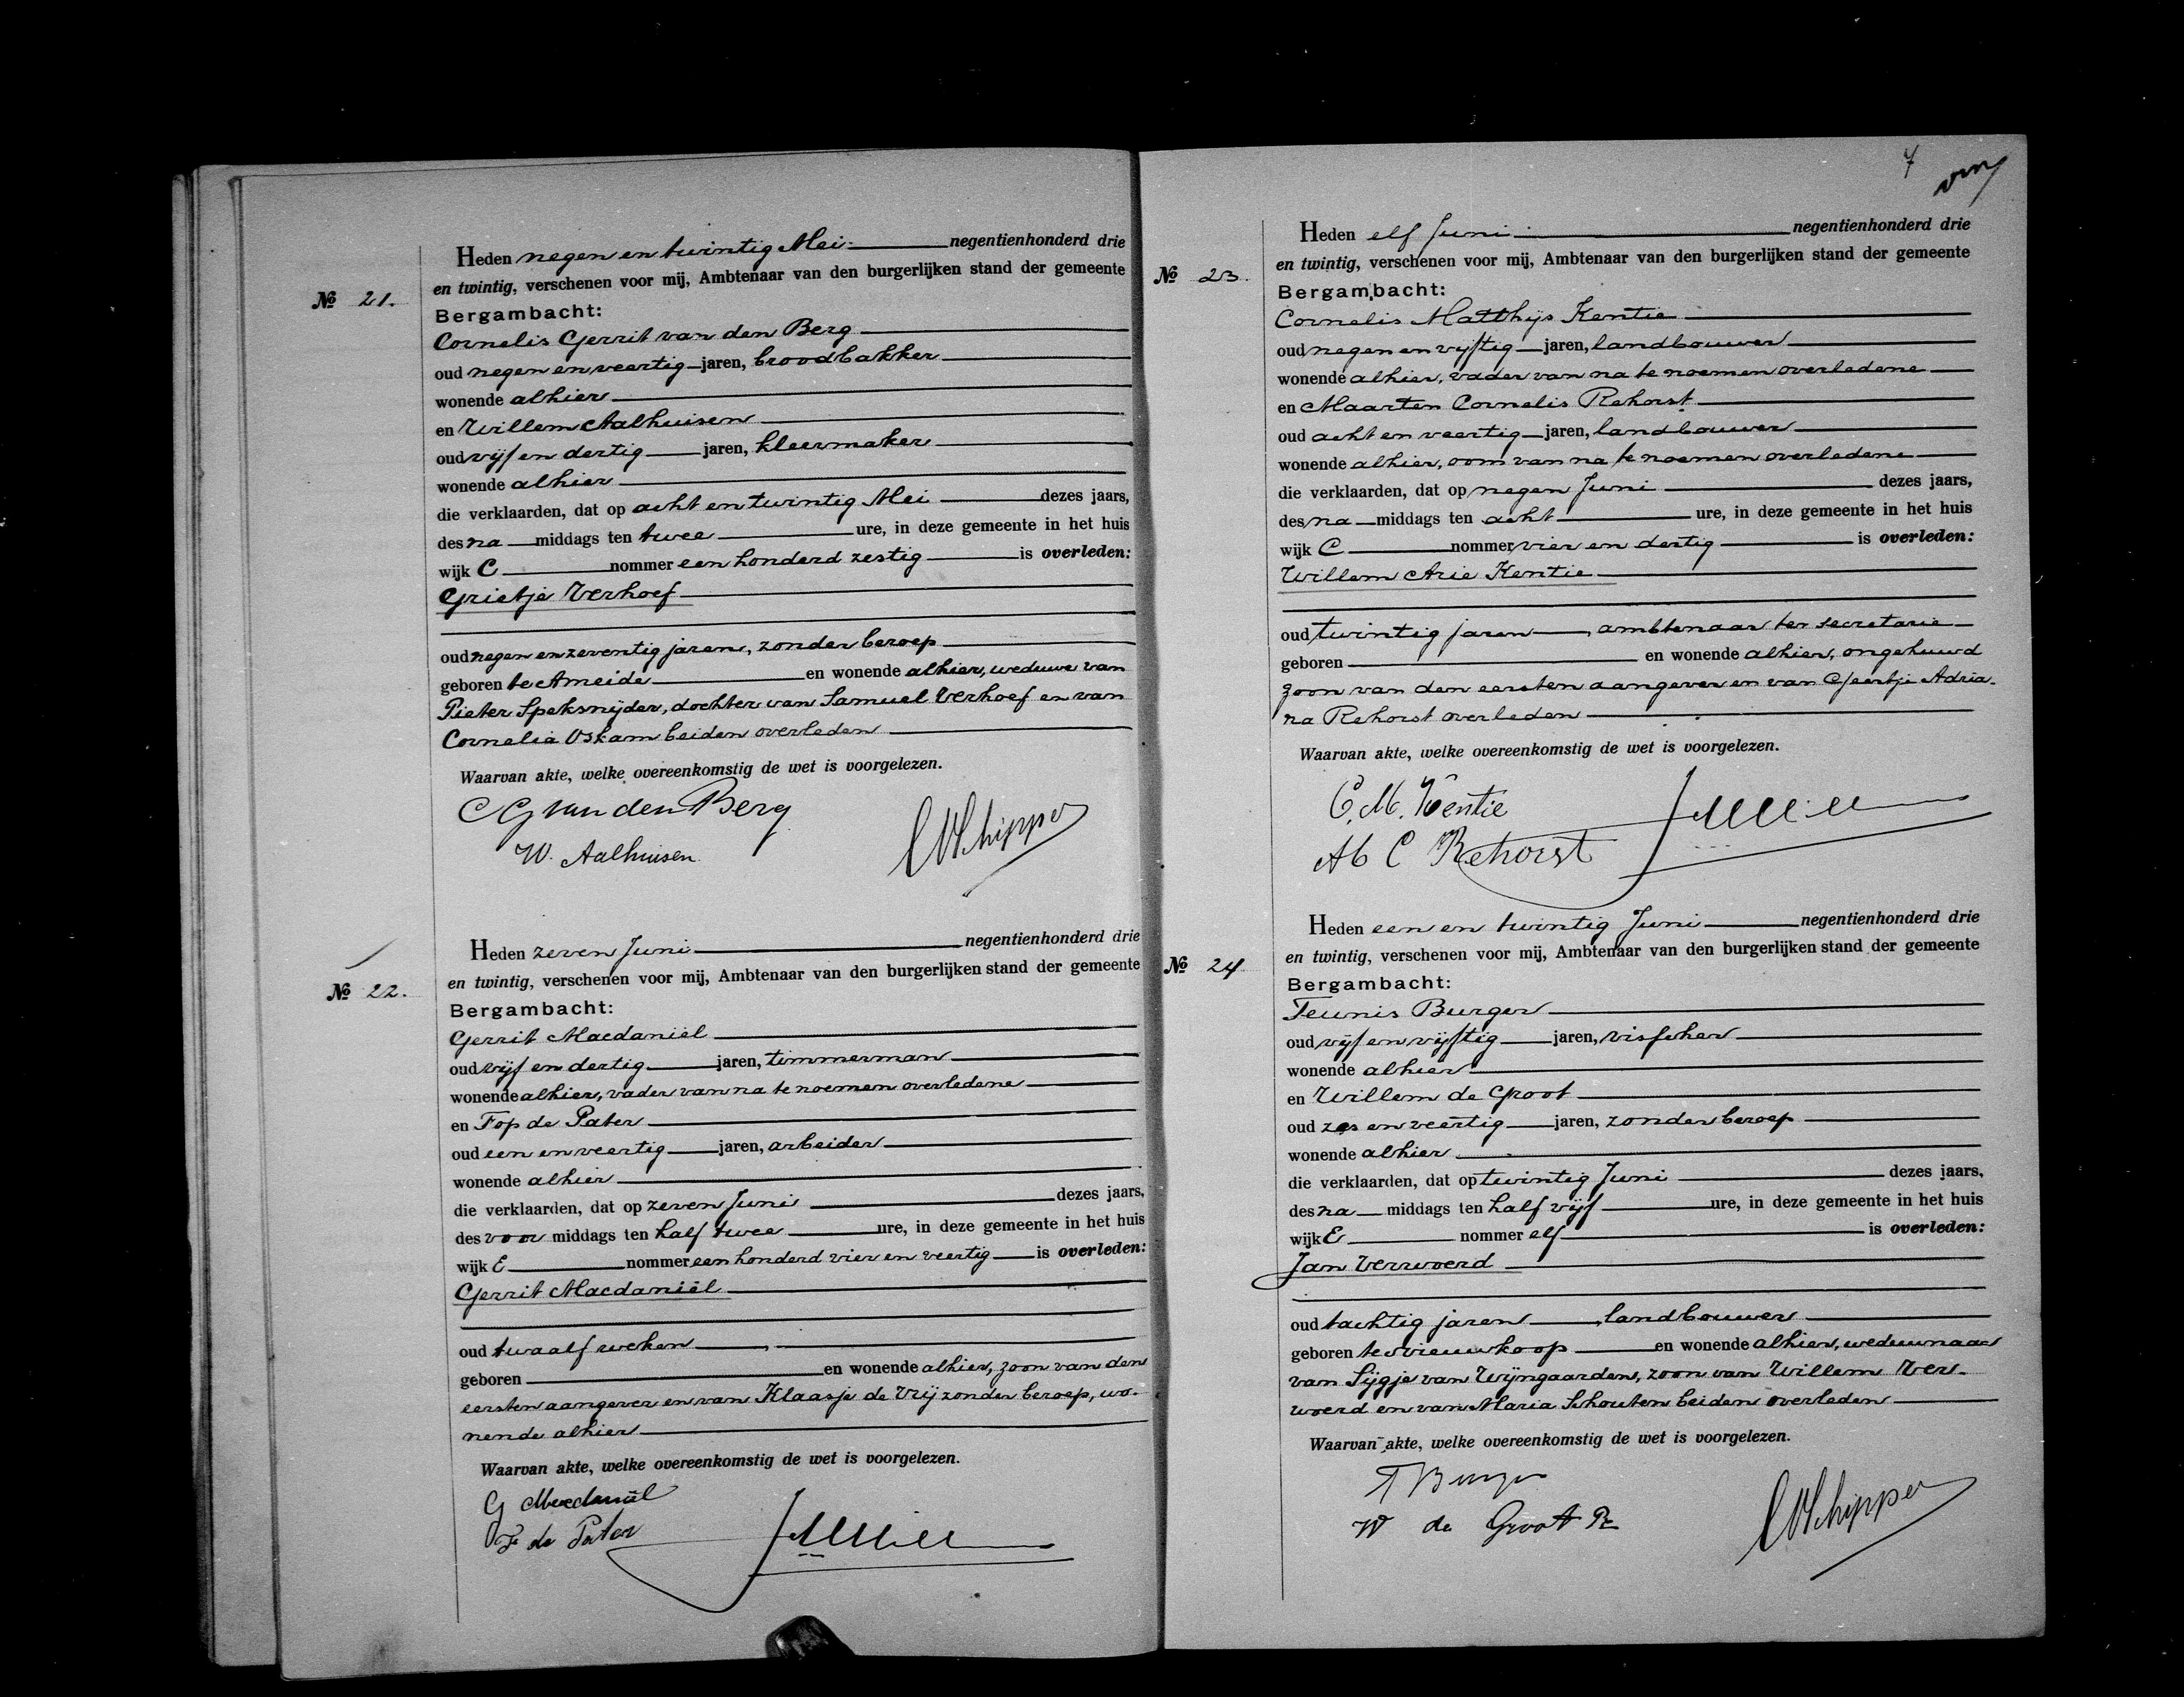 No 21.
Heden negen en twintig Mei negentienhonderd drie
en twintig, verschenen voor mij, Ambtenaar van den burgerlijken stand der gemeente
Bergambacht:
Cornelis Gerrit van den Berg
oud negen en veertig jaren, broodbakker
wonende alhier
en Willem Aalhuisen
oud vijf en dertig jaren, kleermaker
wonende alhier
die verklaarden, dat op acht en twintig Mei dezes jaars,
des na middags ten twee ure, in deze gemeente in het huis
wijk C nommer een honderd zestig is overleden:
Grietje Verhoef
oud negen en zeventig jaren, zonder beroep
geboren te Ameide en wonende alhier, weduwe van
Pieter Speksnijder, dochter van Samuel Verhoef en van
Cornelia Oskam beiden overleden
Waarvan akte, welke overeenkomstig de wet is voorgelezen.
C G van den Berg
W. Aalhuisen
No 22.
Heden zeven Juni negentienhonderd drie
en twintig, verschenen voor mij, Ambtenaar van den burgerlijken stand der gemeente
Bergambacht:
Gerrit Macdaniël
oud vijf en dertig jaren, timmerman
wonende alhier, vader van na te noemen overledene
en Fop de Pater
oud een en veertig jaren, arbeider
wonende alhier
die verklaarden, dat op zeven Juni dezes jaars,
des voor middags ten half twee ure, in deze gemeente in het huis
wijk E nommer een honderd vier en veertig is overleden:
Gerrit Macdaniël
oud twaalf weken
geboren en wonende alhier, zoon van den
eersten aangever en van Klaasje de Vrij zonder beroep, wo-
nende alhier
Waarvan akte, welke overeenkomstig de wet is voorgelezen.
G Macdaniël
F de Pater
7
No 23.
Heden elf Juni negentienhonderd drie
en twintig, verschenen voor mij, Ambtenaar van den burgerlijken stand der gemeente
Bergambacht:
Cornelis Matthijs Kentie
oud negen en vijftig jaren, landbouwer
wonende alhier, vader van na te noemen overledene
en Maarten Cornelis Rehorst
oud acht en veertig jaren, landbouwer
wonende alhier, oom van na te noemen overledene
die verklaarden, dat op negen Juni dezes jaars,
des na middags ten acht ure, in deze gemeente in het huis
wijk C nommer vier en dertig is overleden:
Willem Arie Kentie
oud twintig jaren, ambtenaar ter secretarie
geboren en wonende alhier, ongehuwd
zoon van den eersten aangever en van Geertje Adria-
na Rehorst overleden
Waarvan akte, welke overeenkomstig de wet is voorgelezen.
C. M. Kentie
M C Rehorst
No 24
Heden een en twintig Juni negentienhonderd drie
en twintig, verschenen voor mij, Ambtenaar van den burgerlijken stand der gemeente
Bergambacht:
Teunis Burger
oud vijf en vijftig jaren, visscher
wonende alhier
en Willem de Groot
oud zes en veertig jaren, zonder beroep
wonende alhier
die verklaarden, dat op twintig Juni dezes jaars,
des na middags ten half vijf ure, in deze gemeente in het huis
wijk E nommer elf is overleden:
Jan Verwoerd
oud tachtig jaren, landbouwer
geboren te Nieuwkoop en wonende alhier, weduwnaar
van Sijgje van Wijngaarden, zoon van Willem Ver-
woerd en van Maria Schouten beiden overleden
Waarvan akte, welke overeenkomstig de wet is voorgelezen.
T Burger
W de Groot Pz
CWSchipper